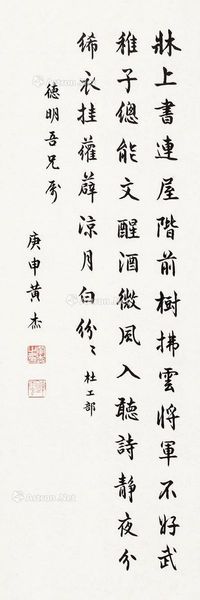 牀上書連屋階前樹拂雲將軍不好武
稚子總能文醒酒微風入聽詩靜夜分
絺衣挂蘿薜涼月白份〻杜工部
德明吾兄屬
庚申黃杰